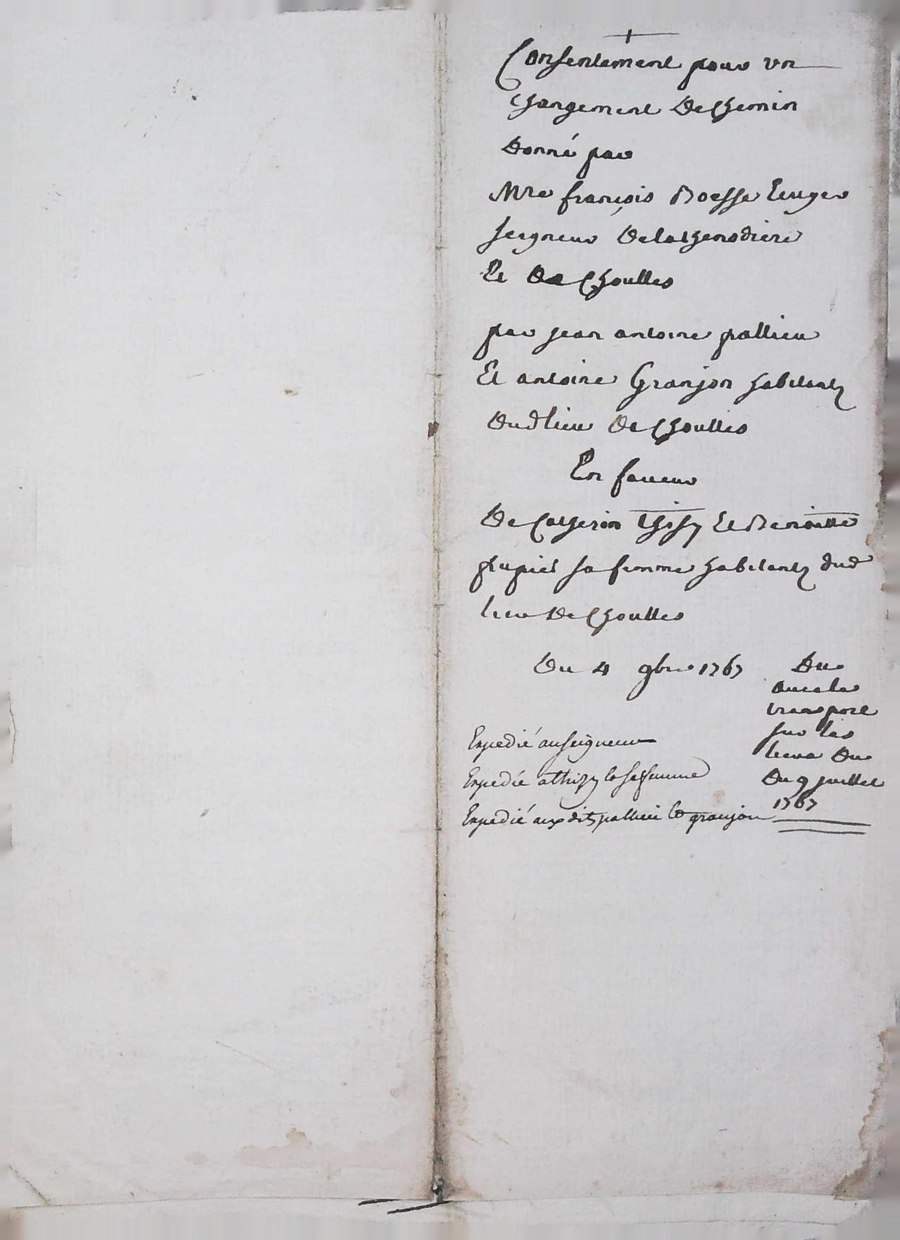 Consentement pour un
changement De Chemin
Donné par
Mre françois Boesse Ecuyer
seigneur Delathenodiere
Et De Choulles
par jean antoine pallieu
Et antoine Granjon habitants
Dud lieu De Choulles
En faueur
De Catherin thisy Et Benoitte
papiet sa femme habitants dud
lieu De Choulles
Du 4 9bre 1767
Expedié au seigneur
Expedié a thisy & sa femme
Expedié aux dits pallieu & granjon
Du
transport
sur les
lieux Du
Du 9 juillet
1767